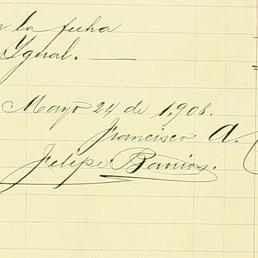 la fecha
Ygual.
Mayo 24 de 1,908.
Francisco A.
Felipe Barrios.